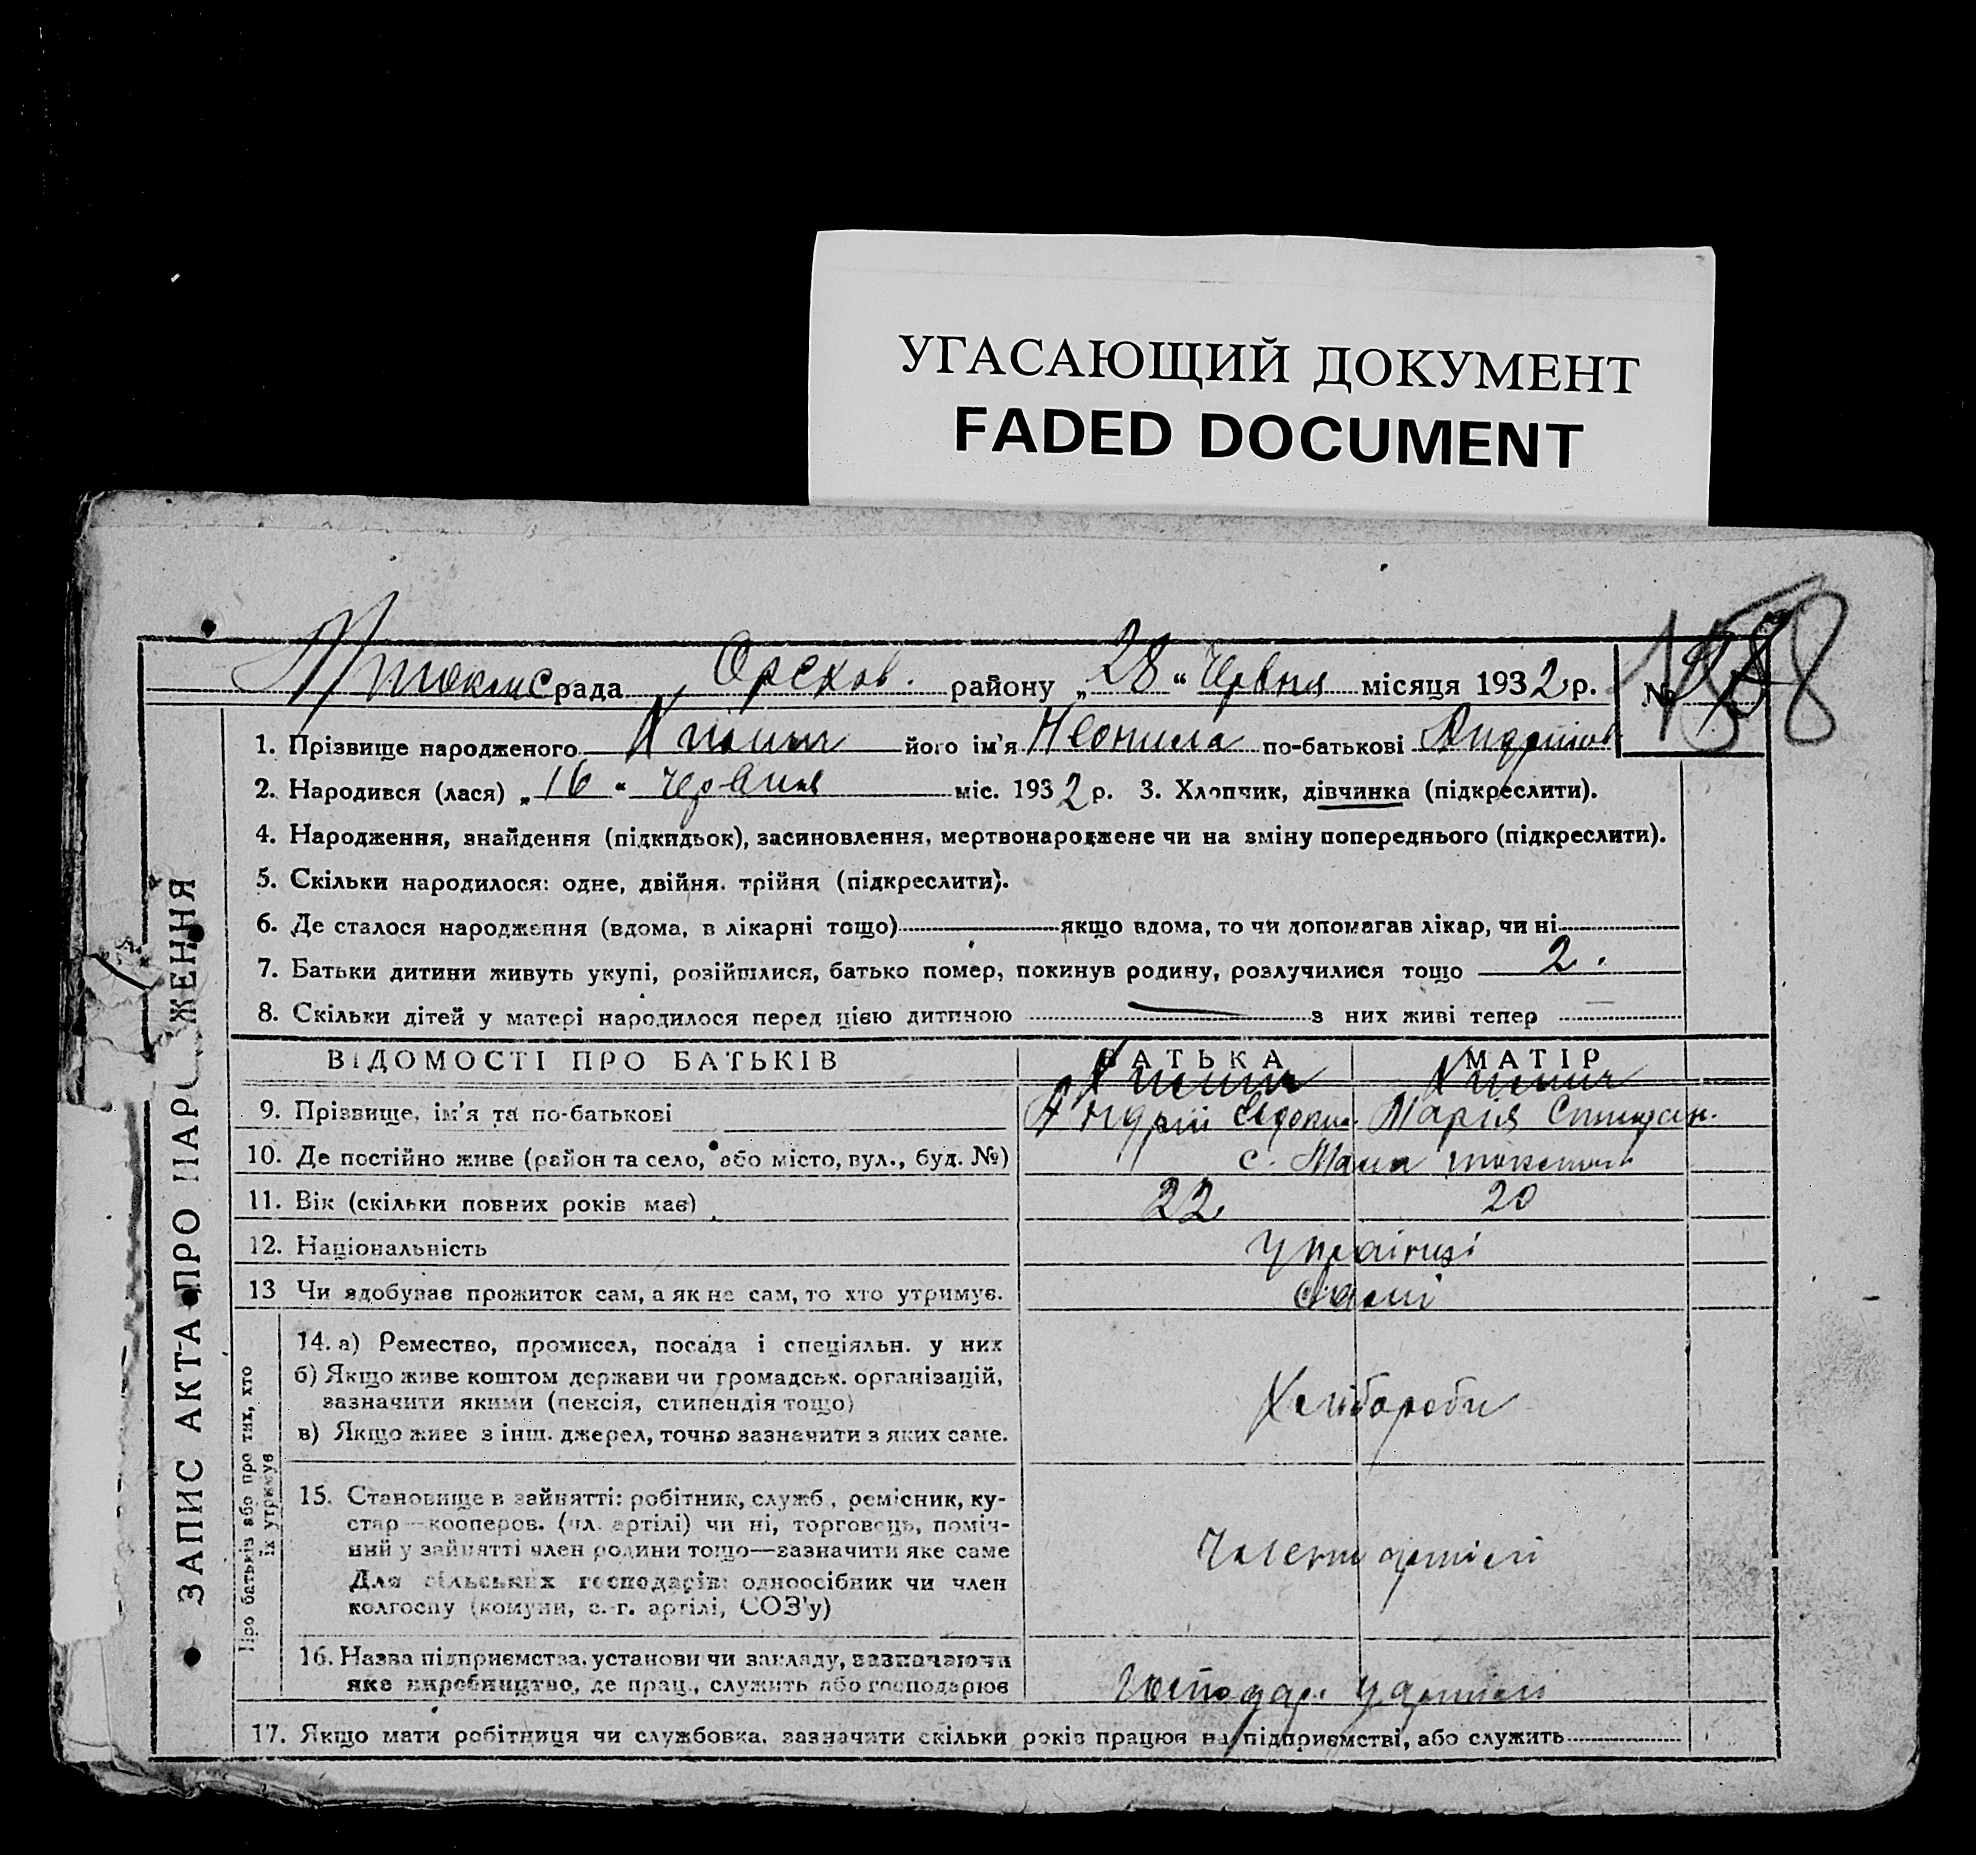 УГАСАЮЩИЙ ДОКУМЕНТ
FADED DOCUMENT
рада Орехов. району „28“ Червня місяця 1932 р. №
1. Прізвище народженого його ім'я Неонила по-батькові
2. Народився (лася) „16“ червня міс. 1932 р. 3. Хлопчик, дівчинка (підкреслити).
4. Народження, знайдення (підкидьок), засиновлення, мертвонароджене чи на зміну попереднього (підкреслити).
5. Скільки народилося: одне, двійня. трійня (підкреслити).
6. Де сталося народження (вдома, в лікарні тощо) якщо вдома, то чи допомагав лікар, чи ні
7. Батьки дитини живуть укупі, розійшлися, батько помер, покинув родину, розлучилися тощо 2.
8. Скільки дітей у матері народилося перед цією дитиною — з них живі тепер —
ЗАПИС АКТА ПРО НАРОЖЕННЯ
ВІДОМОСТІ ПРО БАТЬКІВ БАТЬКА МАТІР
9. Прізвище, ім'я та по-батькові Андрій Марія
10. Де постійно живе (район та село, або місто, вул., буд. №) с. Мала
11. Вік (скільки повних років має) 22 20
12. Національність Українці
13 Чи здобуває прожиток сам, а як не сам, то хто утримує. Самі
Про батьків або про тих, хто
їх утримує
14. а) Ремество, промисел, посада і спеціяльн. у них
б) Якщо живе коштом держави чи громадськ. організацій,
зазначити якими (пенсія, стипендія тощо)
в) Якщо живе з інш. джерел, точно зазначити з яких саме.
Хлібороби
15. Становище в зайнятті: робітник, служб., ремісник, ку-
стар—кооперов. (чл. артілі) чи ні, торговець, поміч-
ний у зайнятті член родини тощо—зазначити яке саме
Для сільських господарів: одноосібник чи член
колгоспу (комуни, с.-г. артілі, СОЗ'у)
Члени артілі
16. Назва підприємства, установи чи закладу, зазначаючи
яке виробництво, де прац., служить або господарює
Господар. у артілі
17. Якщо мати робітниця чи службовка, зазначити скільки років працює на підприємстві, або служить